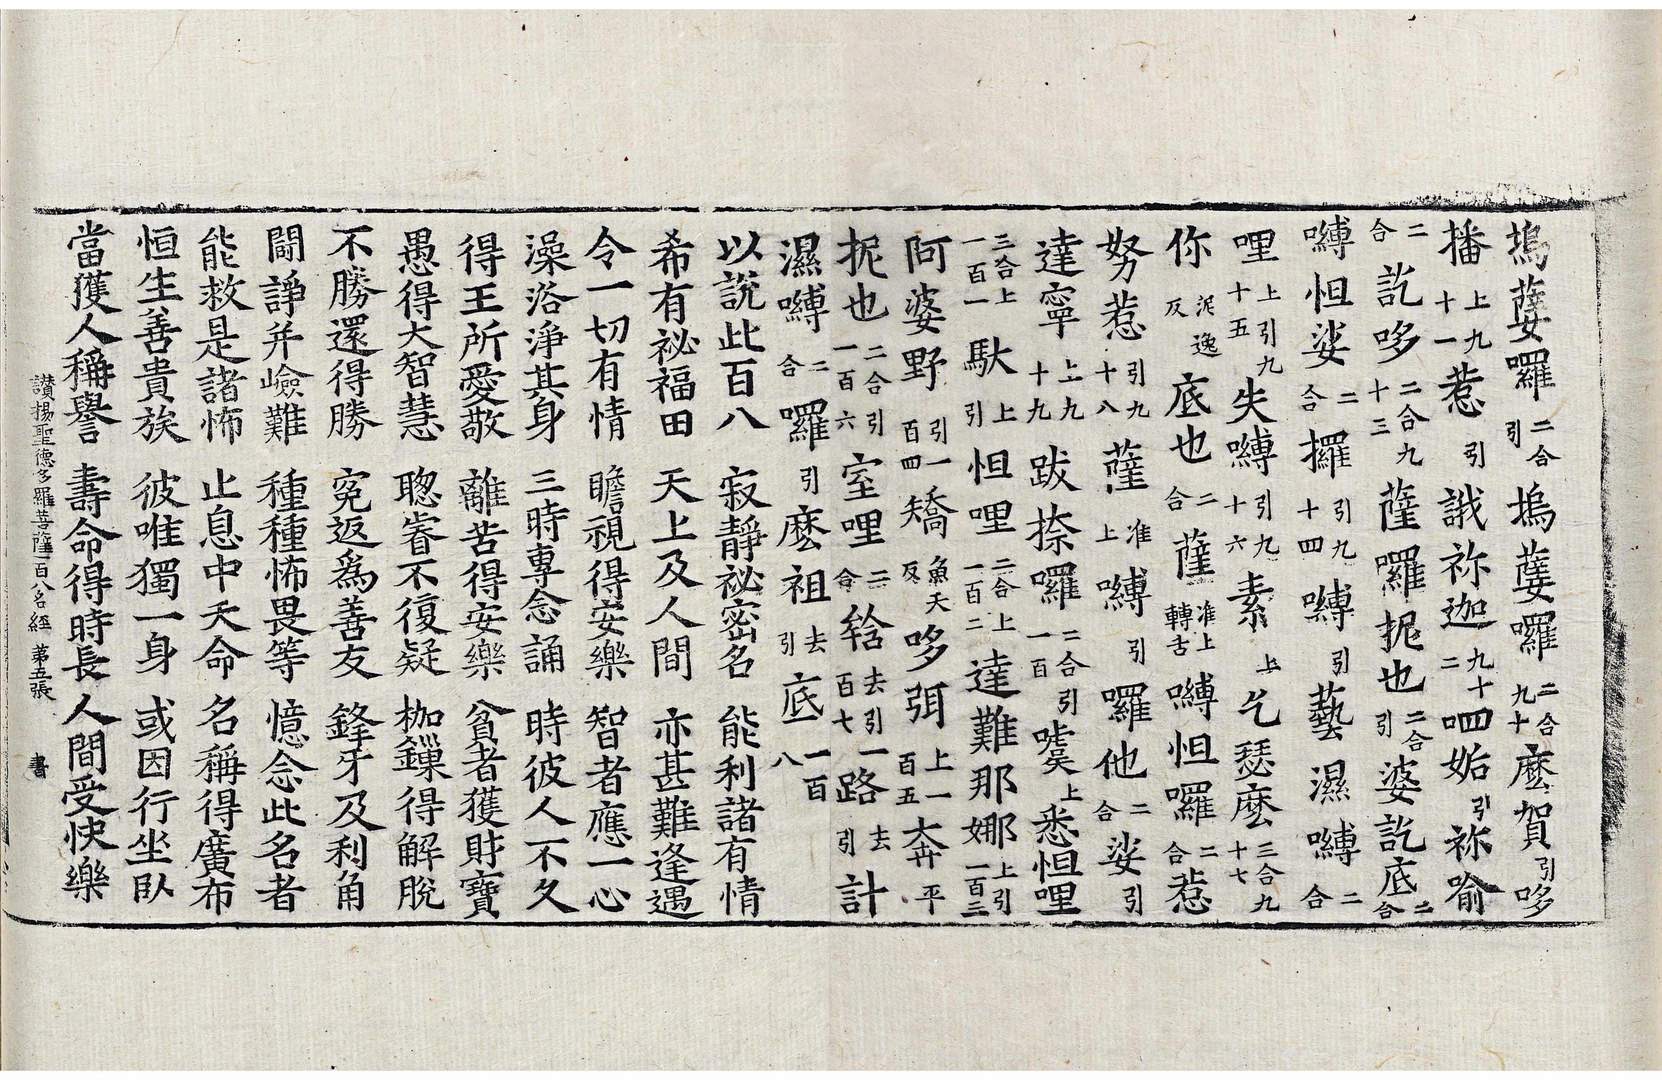 塢蘡囉二合引塢蘡囉二合九十麽賀引哆
播上九十一惹引誐祢迦九十二呬姤引祢喻
二合訖哆二合九十三薩囉抳也二合引婆訖底二合
嚩怛娑二合攞引九十四嚩引藝濕嚩二合
哩上引九十五失嚩引九十六素上乞瑟麽三合九十七
你泥逸反底也二合薩准上轉舌嚩怛囉二合惹
努惹引九十八薩准上嚩引囉他二合娑引
達寧上九十九跋捺囉二合引一百㗭上悉怛哩
三合上一百一馱上引怛哩二合上一百二達難那娜上引一百三
阿婆野引一百四矯魚夭反哆弭上一百五奔平
抳也二合引一百六室哩二合㝓去引一百七路去引計
濕嚩二合囉引麽祖去引底一百八
以說此百八　寂靜祕密名　能利諸有情
希有祕福田　天上及人間　亦甚難逢遇
令一切有情　瞻視得安樂　智者應一心
澡浴淨其身　三時專念誦　時彼人不久
得王所愛敬　離苦得安樂　貧者獲財寶
愚得大智慧　聦睿不復疑　枷鏁得解脫
不勝還得勝　冤返爲善友　鋒牙及利角
鬪諍并嶮難　種種怖畏等　憶念此名者
能救是諸怖　止息中夭命　名稱得廣布
恒生善貴族　彼唯獨一身　或因行坐臥
當獲人稱譽　壽命得時長　人間受快樂
讃揚聖德多羅菩薩一百八名經　第五張　書